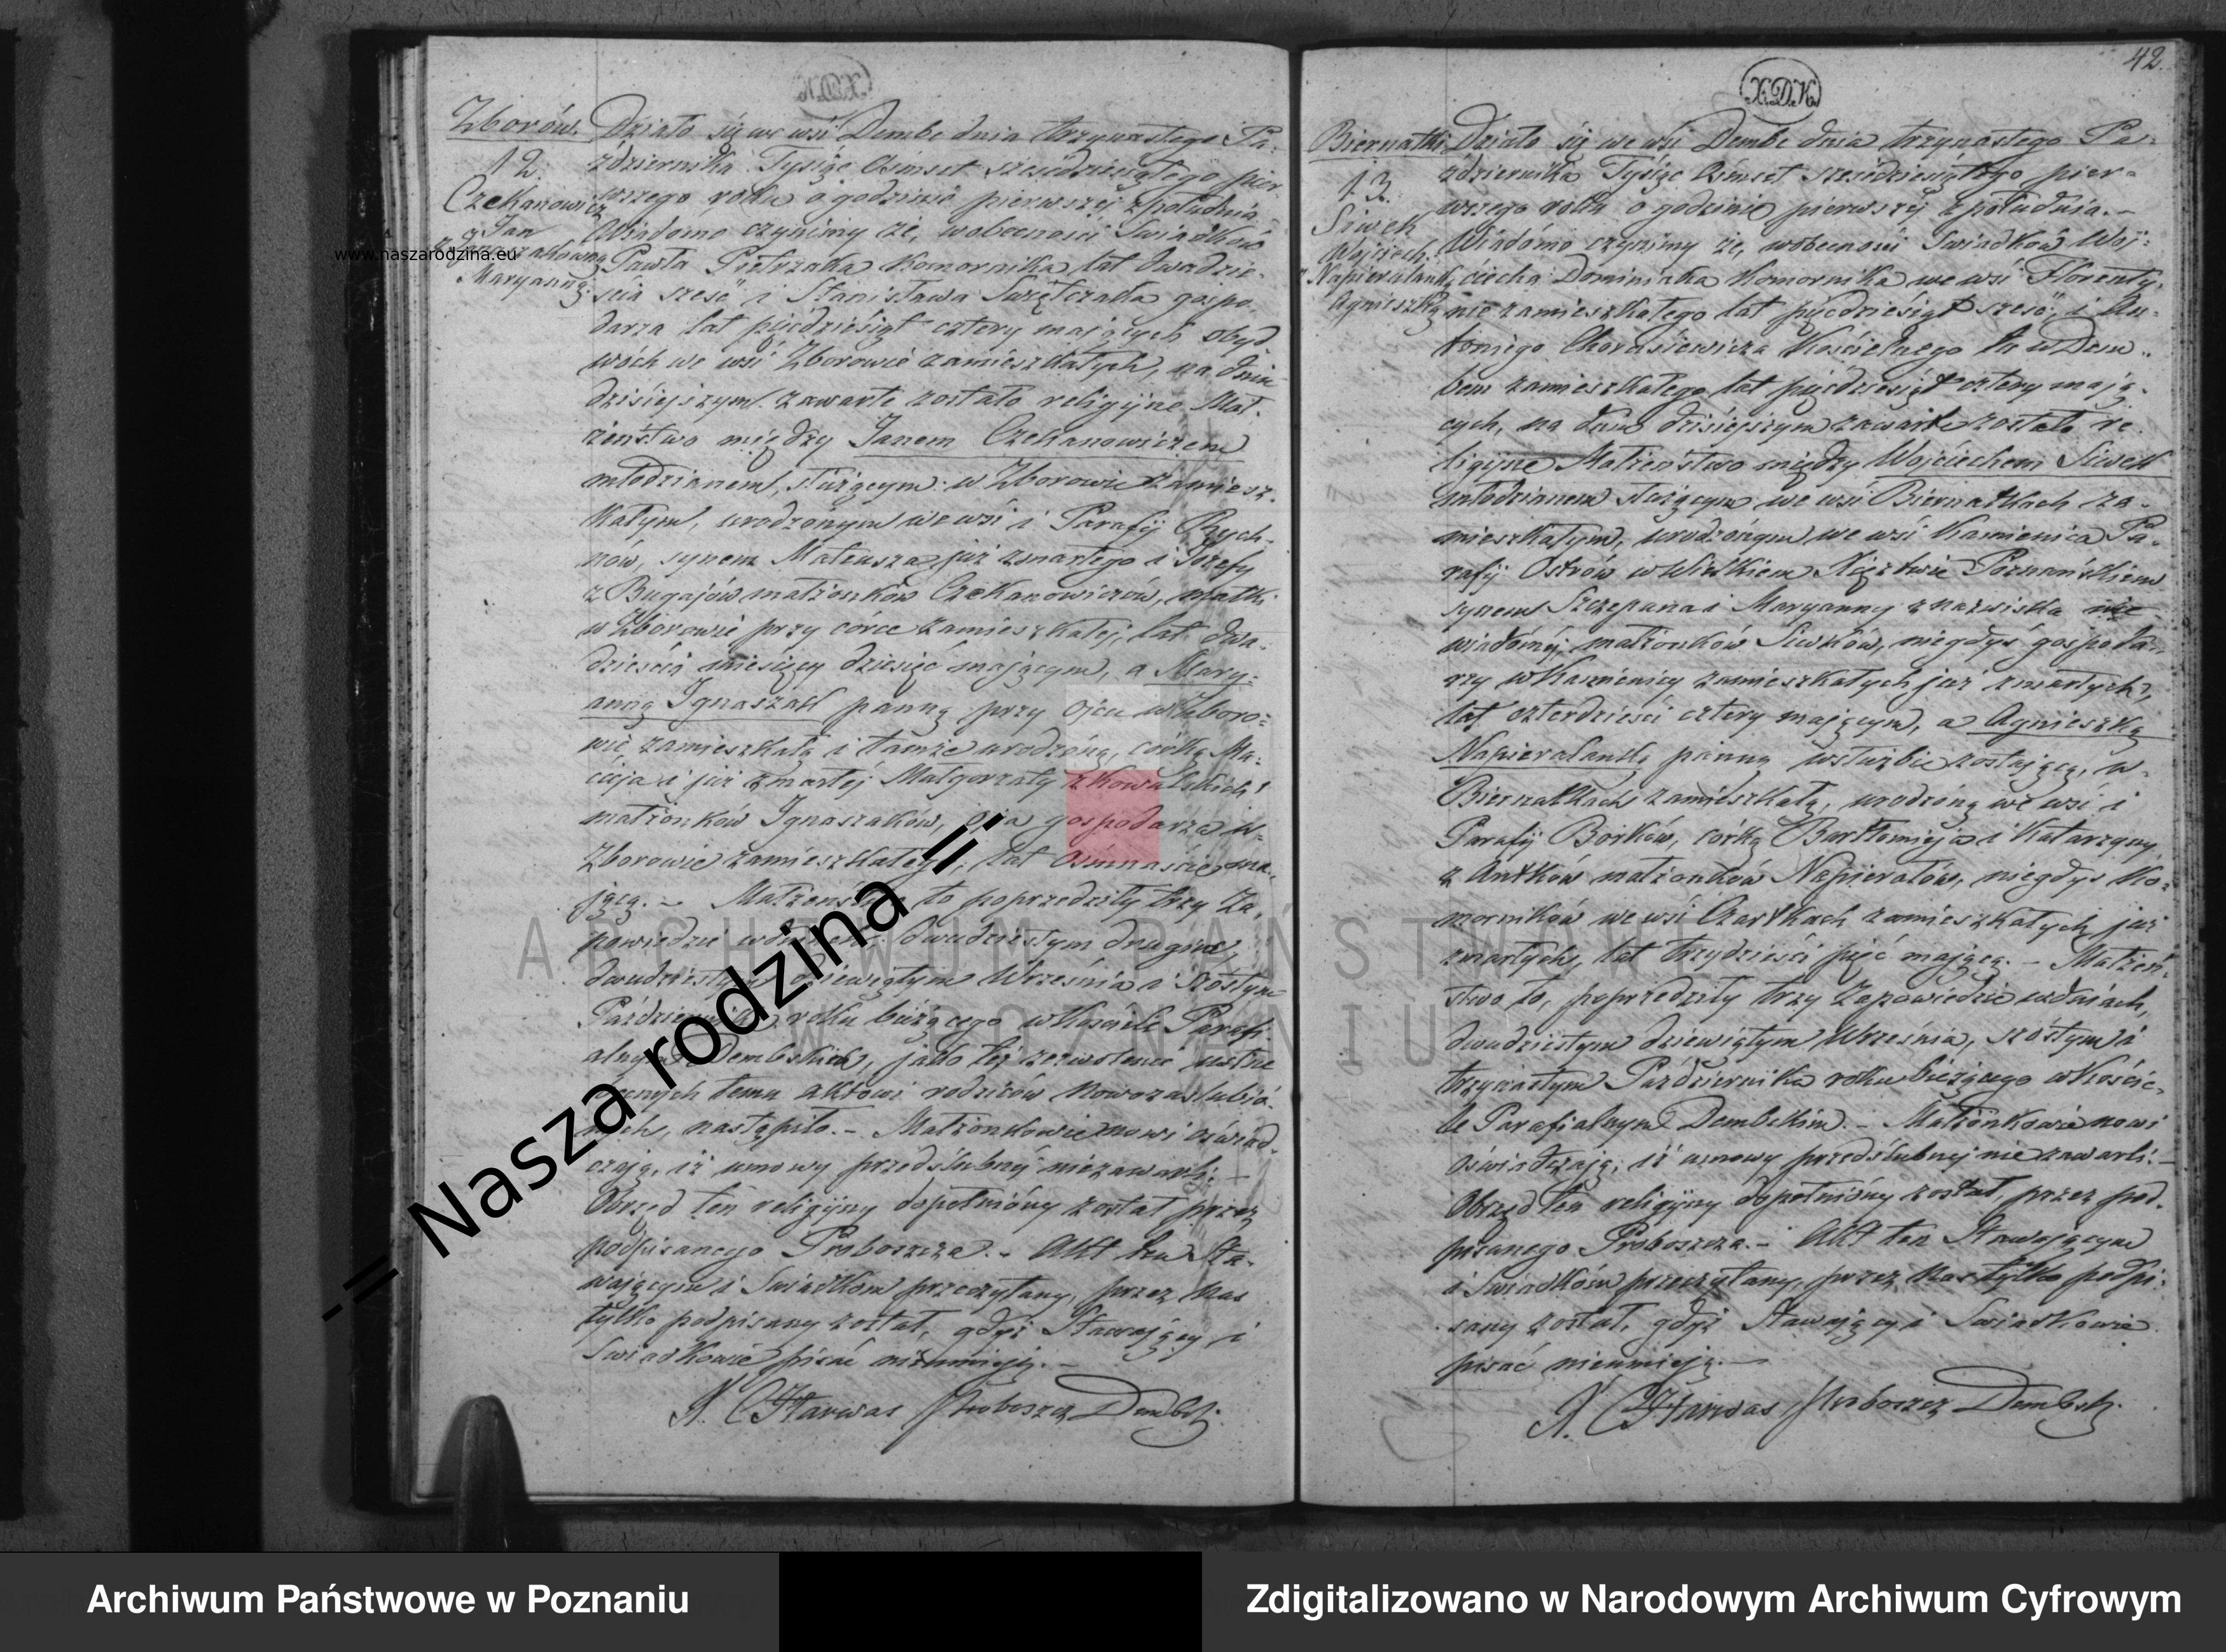 Zborów.
12.
Czekanowicz
Jan
z Ignaszakówną
Maryanną
Działo się we wsi Dembe dnia trzynastego Pa-
ździernika Tysiąc Ośmset sześćdziesiątego pier-
wszego roku o godzinie pierwszej z południa.
Wiadomo czynimy że, wobecności Świadków
Pawła Pietrzaka Komornika lat dwadzie-
ścia sześć i Stanisława gospo-
darza lat pięćdziesiąt cztery mających obyd
wóch we wsi Zborowie zamieszkałych, na dniu
dzisiejszym zawarte zostało religijne Mał-
żeństwo między Janem Czekanowiczem
młodzianem, służącym w Zborowie zamiesz-
kałym, urodzonym we wsi i Parafij Rych-
nów, synem Mateusza już zmarłego i Józefy
z Bugajów małżonków Czekanowiczów, matki
w Zborowie przy córce zamieszkałej, lat dwa-
dzieścia miesięcy dziesięć mającym, a Mary-
anną Ignaszak panną przy ojcu w Zboro-
wie zamieszkałą i tamże urodzoną, córką Ma-
cieja i już zmarłej Małgorzaty z Kowalskich
małżonków Ignaszaków, ojca gospodarza w
Zborowie zamieszkałego, lat Ośmnaście ma-
jącą. – Małżeństwo to poprzedziły trzy Za-
powiedzie w dniach, dwudziestym drugim,
dwudziestym dziewiątym Września i szóstym
Października roku bieżącego w Kościele Parafi-
alnym Dembskim, jako też zezwolenie ustne
obecnych temu aktowi rodziców nowozaślubio-
nych, nastąpiło. – Małżonkowie nowi oświad-
czają, iż umowy przedślubnej niezawarli. –
Obrzęd ten religijny dopełniony został przez
podpisanego Proboszcza. – Akt ten Sta-
wającym i Świadkom przeczytany, przez nas
tylko podpisany został, gdyż Stawający i
Świadkowie pisać nieumieją. –
X. Harwas Proboszcz Dembski
X.D.K.
42.
Biernatki
13.
Siwek
Wojciech
z Napieralanką
Agnieszką
Działo się we wsi Dembe dnia trzynastego Pa-
ździernika Tysiąc Ośmset sześćdziesiątego pier-
wszego roku o godzinie pierwszej z południa. –
Wiadomo czynimy że, wobecności Świadków Woj-
ciecha Dominiaka Komornika we wsi Florenty-
nie zamieszkałego lat pięćdziesiąt sześć, i An-
toniego Kościelnego tu w Dem-
bem zamieszkałego lat pięćdziesiąt cztery mają-
cych, na dniu dzisiejszym zawarte zostało re-
ligijne Małżeństwo między Wojciechem Siwek
młodzianem służącym we wsi Biernatkach za-
mieszkałym, urodzonym we wsi Kamienica Pa-
rafij Ostrow w Wielkiem Księztwie Poznańskiem
synem Szczepana i Maryanny z nazwiska nie
wiadomej małżonków Siwków, niegdyś gospoda-
rzy w Kamienicy zamieszkałych już zmarłych,
lat czterdzieści cztery mającym, a Agnieszką
Napieralanką panną w służbie zostającą, w
Biernatkach zamieszkałą, urodzoną we wsi i
Parafij Borków, córką Bartłomieja i Katarzyny
z Antków małżonków Napierałów, niegdyś Ko-
morników we wsi Czartkach zamieszkałych już
zmarłych, lat trzydzieści pięć mającą. – Małżeń-
stwo to, poprzedziły trzy Zapowiedzie w dniach,
dwudziestym dziewiątym Września, szóstym i
trzynastym Października roku bieżącego w Koście-
le Parafialnym Dembskim. – Małżonkowie nowi
oświadczają, iż umowy przedślubnej nie zawarli. –
Obrzęd ten religijny dopełniony został, przez pod-
pisanego Proboszcza. – Akt ten Stawającym
i Świadkom przeczytany, przez nas tylko podpi-
sany został, gdyż Stawający i Świadkowie
pisać nieumieją. –
X. Harwas Proboszcz Dembski
www.naszarodzina.eu
-= Nasza rodzina =-
ARCHIWUM PAŃSTWOWE
W POZNANIU
Archiwum Państwowe w Poznaniu
Zdigitalizowano w Narodowym Archiwum Cyfrowym